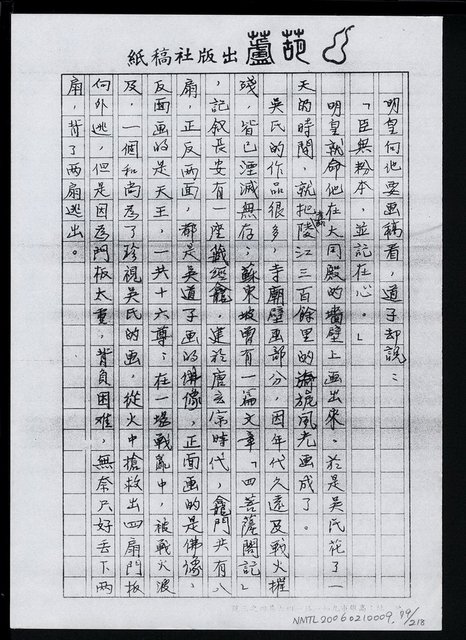 葫蘆出版社稿紙
明皇向他要画稿看，道子却說：
「臣無粉本，並記在心。」
明皇就命他在大同殿的墻壁上画出來。於是吳氏花了一
天的時間，就把嘉陵江三百餘里的旖旎風光画成了。
吳氏的作品很多，寺廟壁画部分，因年代久遠及戰火摧
殘，皆已湮滅無存；蘇東坡曾有一篇文章「四菩薩閣記」
，記叙長安有一座藏經龕，建於唐玄宗時代，龕門共有八
扇，正反两面，都是吳道子画的佛像，正面画的是佛像，
反面画的是天王，一共十六尊；在一場戰亂中，被戰火波
及，一個和尚為了珍視吳氏的画，從火中搶救出四扇門板
向外逃，但是因為門板太重，背負困难，無奈只好丢下两
扇，背了两扇逃出。
NMTL20060210009, 99/218